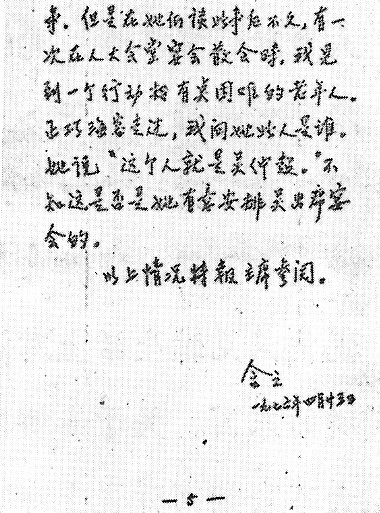 事。但是在她们谈此事后不久，有一
次在人大会堂宴会散会时，我见
到一个行动稍有点困难的老年人。
正巧海容走过，我问她此人是谁。
她说“这个人就是吴仲超。”不
知这是否是她有意安排吴出席宴
会的。
以上情况特报主席参阅。
一九七六年四月十五日
— 5 —